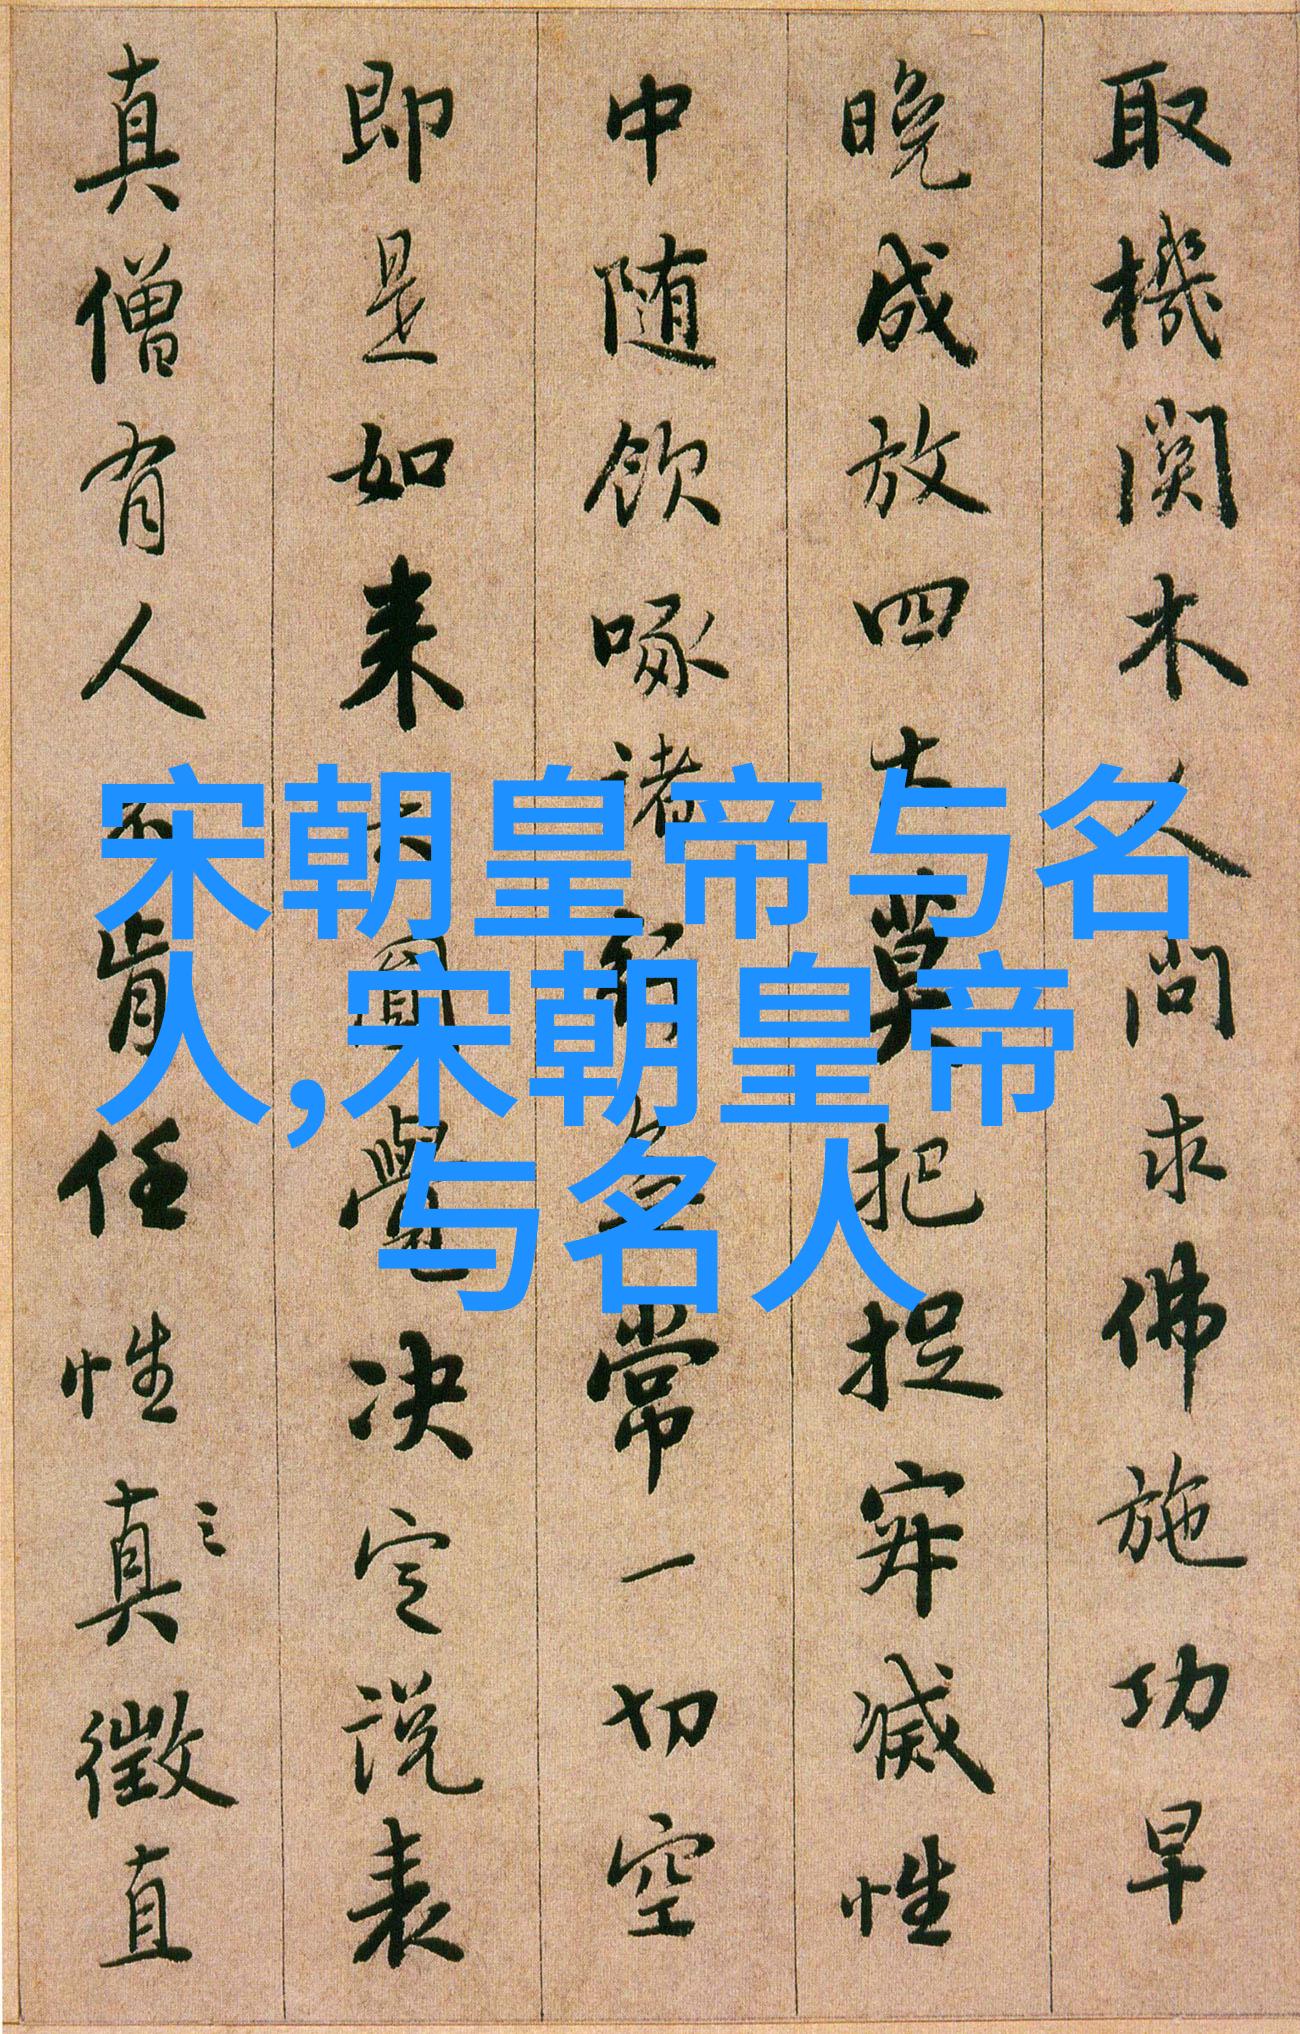 取機関木人问求佛施功早
晚成放四大莫把捉寂滅性
中随飲啄諸行無常一切空
即是如来大圓覺决定说表
真僧有人不肯任性真徴直
之
宋朝皇帝与名
人,宋朝皇帝
与名人